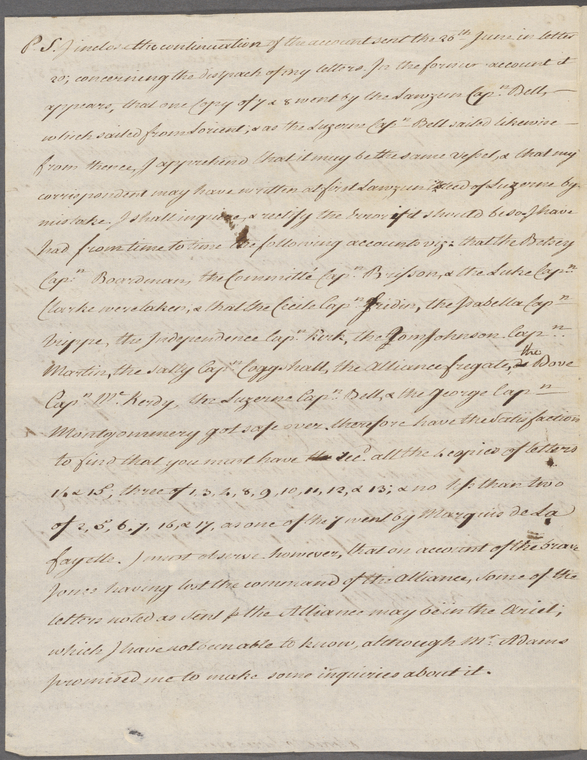 P. S. I inclose the continuation of the account sent the 20th June in letter
20, concerning the dispach of my letters. In the former account it
appears, that one Copy of 7 & 8 went by the Lawzun Capn. Bell,—
which sailed from Lorient; & as the Luzerne Capn. Bell sailed likewise—
from thence, I apprehend that it may be the same vessel, & that my
correspondent may have written at first Lawzun instead of Luzerne by
mistake. I shall inquire, & rectify the error if it should be so. I have
had from time to time the following accounts viz: that the
Capn. Boardman, the Committé Capn. Brisson, & the Luke Capn.
Clarke were taken, & that the Cecile Capn. the Isabella Capn.
Trippe, the Independence Capn. Kerk, the Tom Johnson Capn.
Martin, the Sally Capn. Coggshall, the Alliance frigate, the Dove
Capn. the Luzerne Capn. Bell, & the George Capn.—
Montgommery got safe over, therefore have the satisfaction
to find that you must have recd. all the 4 copies of letters
14 & 15, three of 1, 3, 4, 8, 9, 10, 11, 12, & 13; & no less than two
of 2, 5, 6, 7, 16, & 17, as one of the 7 went by Marquis de La
fayette. I must observe however, that on account of the brave
Jones having lost the command of the Alliance, some of the
letters noted as sent p the Alliance may be in the Ariel;
which I have not been able to know, although Mr. Adams
promised me to make some inquiries about it.